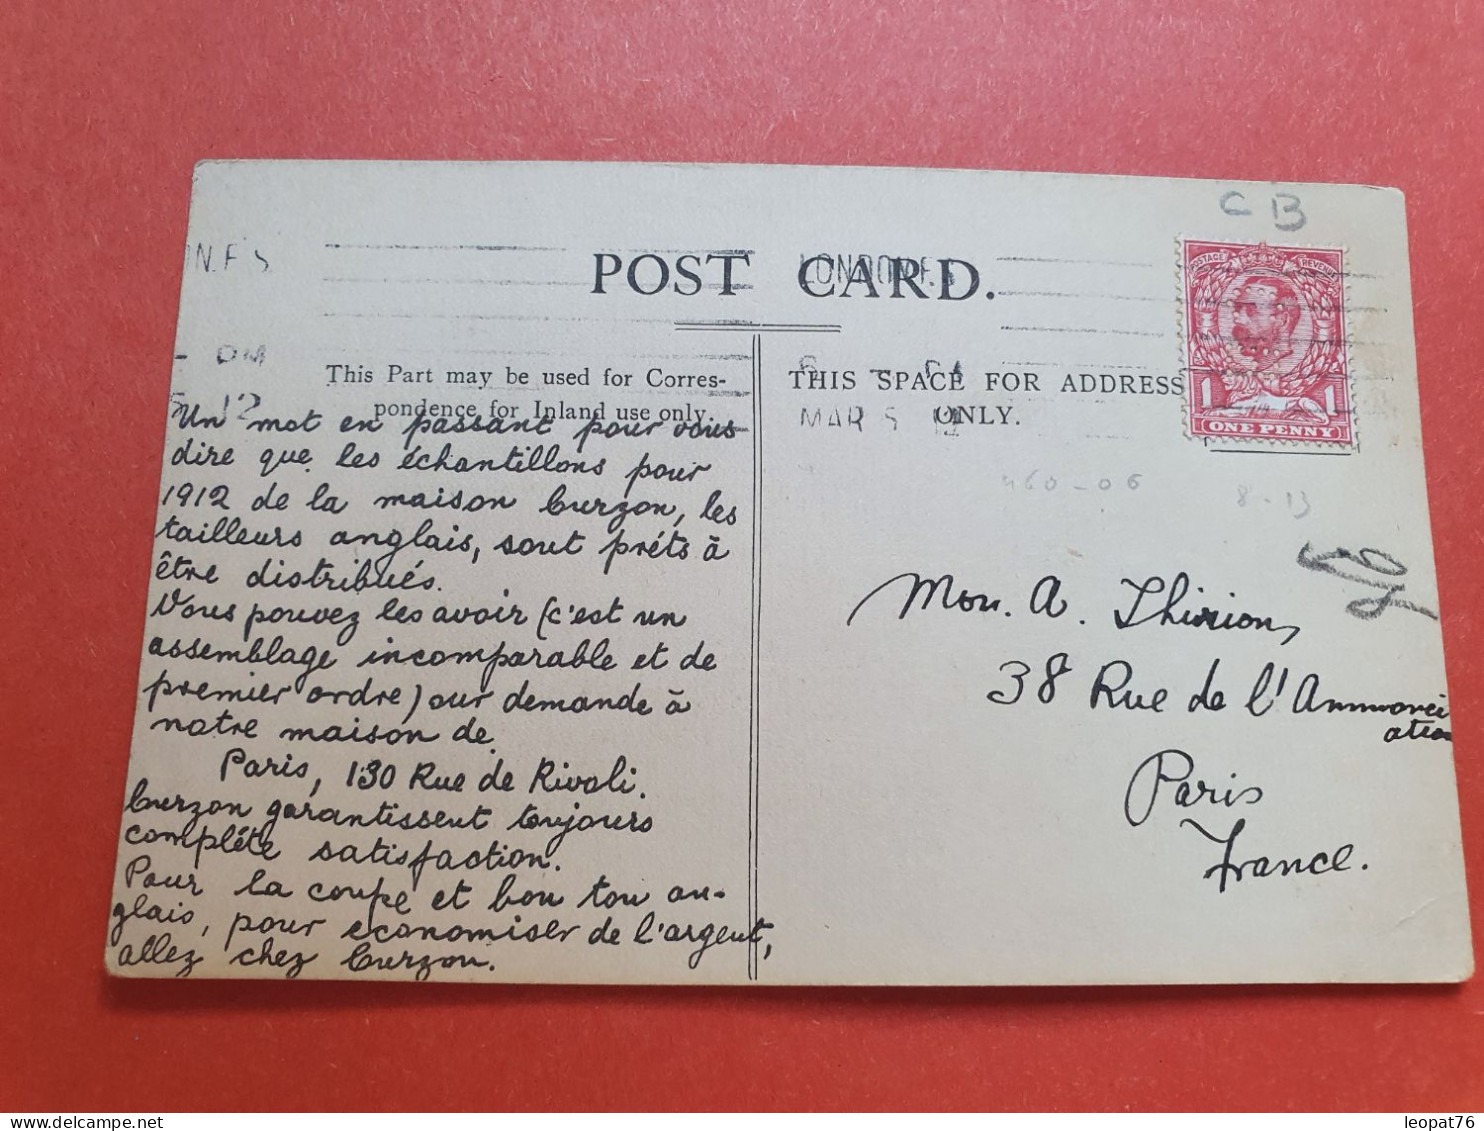 C B
N.F.S
LONDON.F.S
POST CARD.
PM
5 12
MAR 5 12
This Part may be used for Corres-
pondence for Inland use only.
THIS SPACE FOR ADDRESS
ONLY.
POSTAGE REVENUE
1 1
ONE PENNY
460-06
8-13
Un mot en passant pour vous
dire que les échantillons pour
1912 de la maison Curzon, les
tailleurs anglais, sont préts à
être distribués.
Vous pouvez les avoir (c'est un
assemblage incomparable et de
premier ordre) sur demande à
notre maison de
Paris, 130 Rue de Rivoli.
Curzon garantissent toujours
complète satisfaction.
Pour la coupe et bon ton an-
glais, pour economiser de l'argent,
allez chez Curzon.
Mon. A. Thirion,
38 Rue de l'Annonci
ation
Paris
France.
leopat76